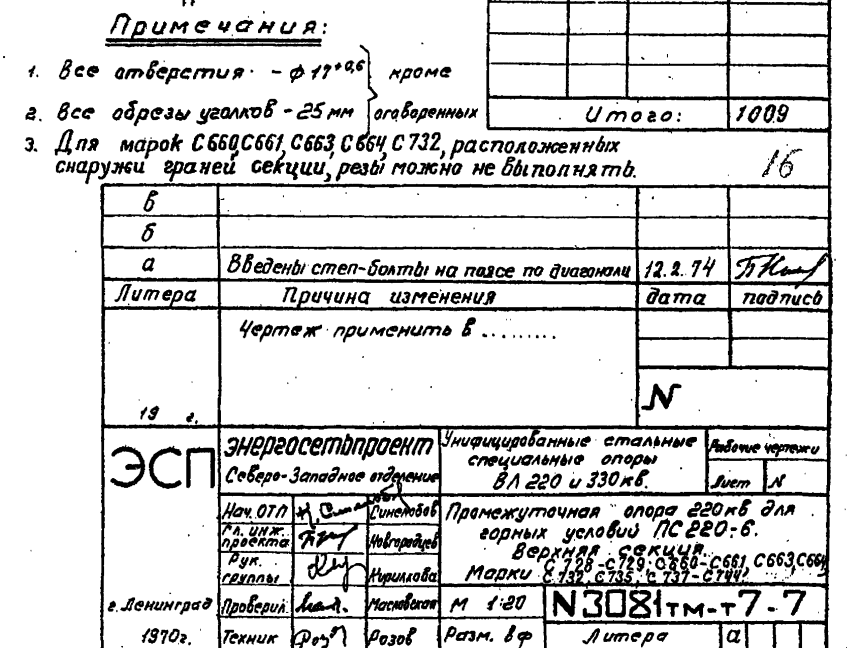 Примечания:
1. Все отверстия - ф 17+0,6 } кроме
2. Все обрезы уголков - 25 мм } оговоренных
Итого: 1009
3. Для марок С660,С661,С663,С664,С732, расположенных
снаружи граней секции, резы можно не выполнять.
16
в
б
а Введены степ-болты на поясе по диагонали 12.2.74
Литера Причина изменения дата подпись
Чертеж применить в .........
N
19 г.
ЭСП
Энергосетьпроект
Северо-Западное отделение
Унифицированные стальные
специальные опоры
ВЛ 220 и 330 кв.
Рабочие чертежи
Лист N
Нач. ОТП Синелобов
Гл. инж.
проекта Новгородцев
Рук.
группы Кириллова
Промежуточная опора 220 кв для
горных условий ПС 220-6.
Верхняя секция.
Марки С728-С729; С660-С661, С663, С664
С732, С735, С737-С744.
г. Ленинград Проверил Масловская М 1:20 N3081тм-т7-7
1970г. Техник Розов Разм. в ф Литера а